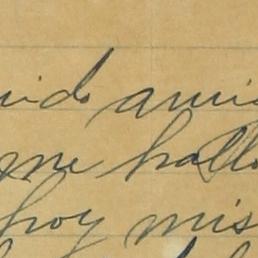 ido ami
me hallo
hoy mis